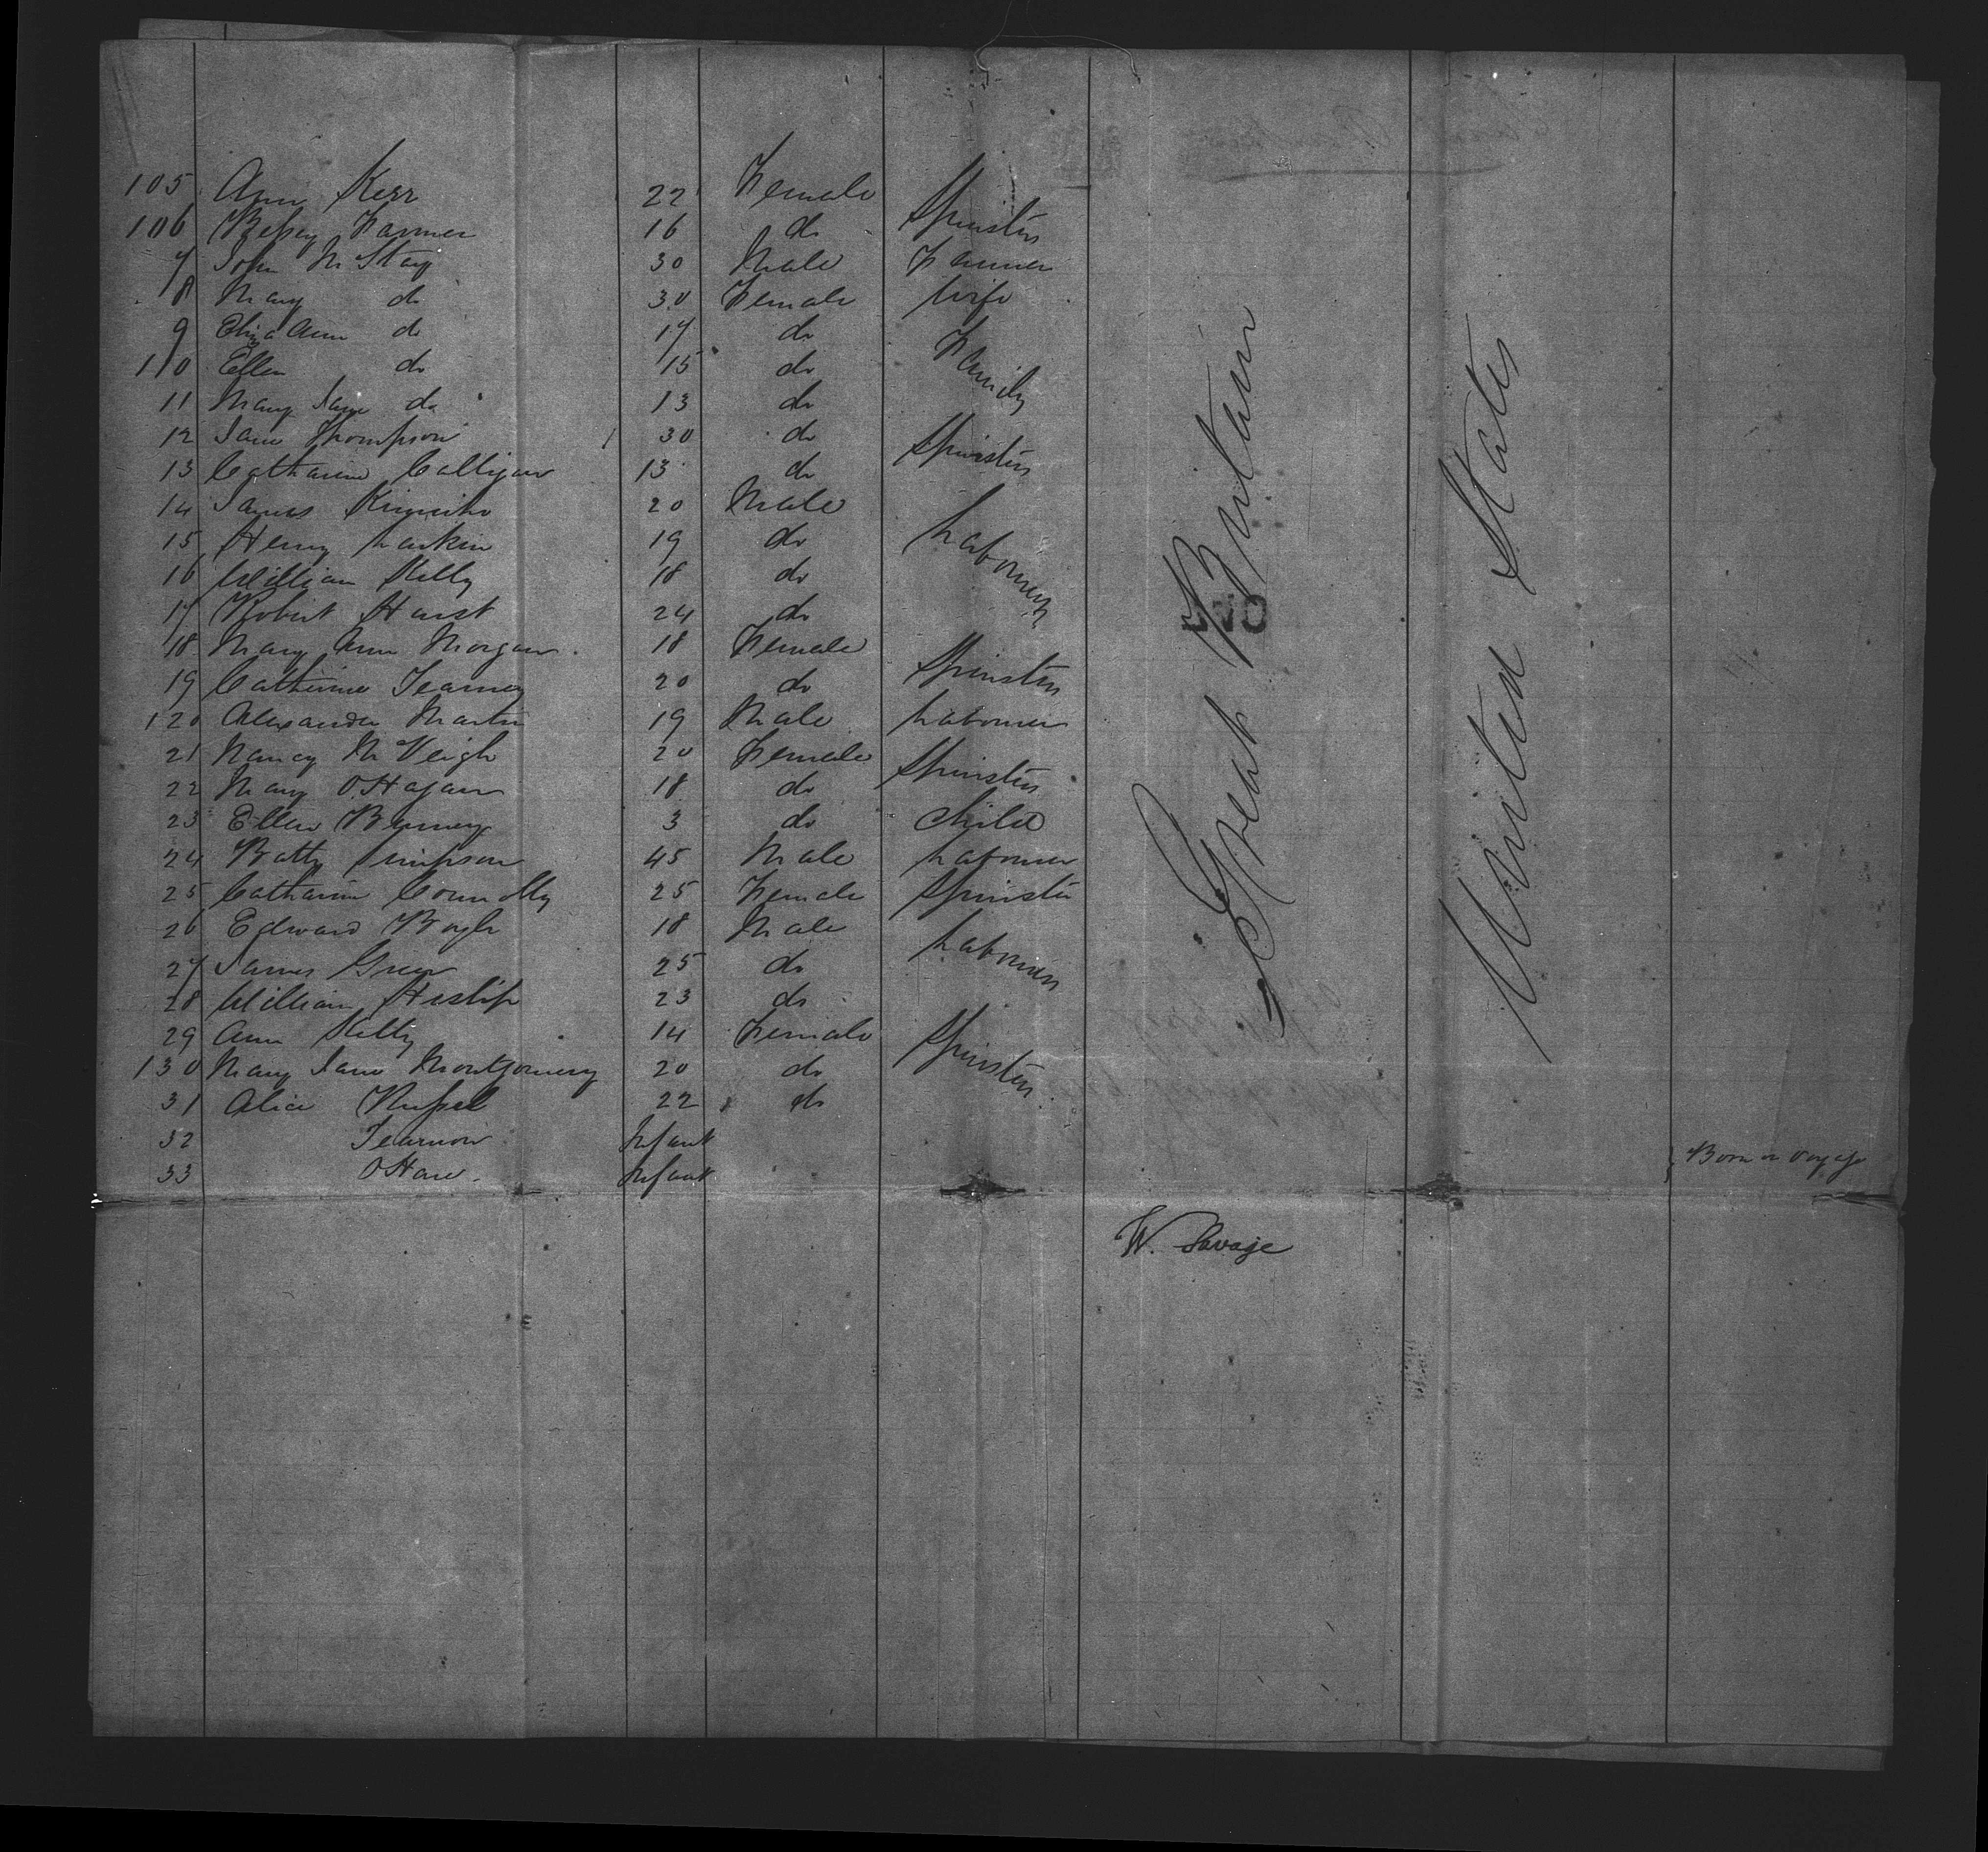 105 Ann Kerr 22 Female
106 Betsey Farmer 16 do Spinsters
7 John McStay 30 Male Farmer
8 Mary do 30 Female Wife
9 Eliza Ann do 17 do
110 Ellen do 15 do Family
11 Mary Jane do 13 do
12 Jane Thompson 30 do Spinsters
13 Catharine Calligan 13 do
14 James 20 Male
15 Henry Larkin 19 do Labourers
16 William Kelly 18 do
17 Robert Hurst 24 do
18 Mary Ann Morgan 18 Female
19 Catherine Tearney 20 do Spinsters
120 Alexander Martin 19 Male Labourer
21 Nancy McVeigh 20 Female Spinsters
22 Mary O'Hagan 18 do
23 Ellen 3 do Child
24 Batty Simpson 45 Male Labourer
25 Catharine Connolly 25 Female Spinster
26 Edward Boyle 18 Male Labourers
27 James Greer 25 do
28 William Heslip 23 do
29 Ann Kelly 14 Female Spinsters
130 Mary Jane Montgomery 20 do
31 Alice Russel 22 do
32 Infant
33 O'Hare Infant
Great Britain
United States
Born on Voyage
W. Savage